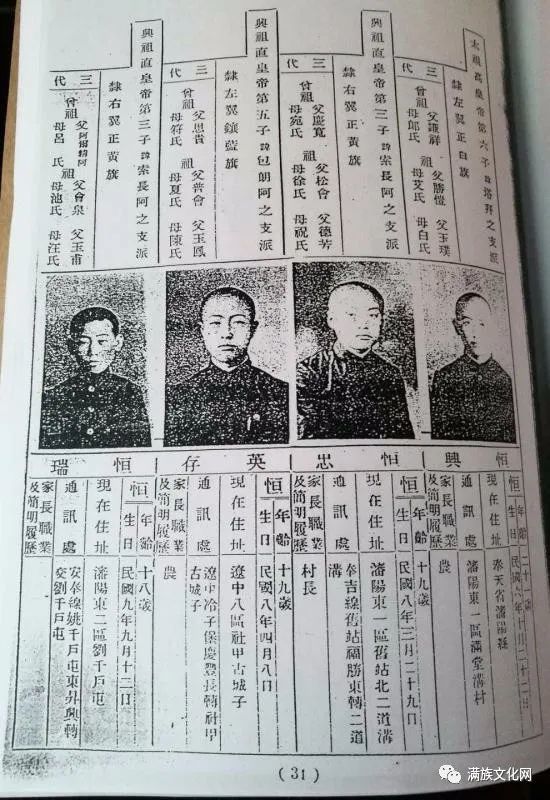 太祖高皇帝第六子諱塔拜之支派
隸左翼正白旗
三代
曾祖 祖
父謙祥 父勝愷 父玉璞
母郎氏 母艾氏 母白氏
興祖直皇帝第三子諱索長阿之支派
隸右翼正黃旗
三代
曾祖 祖
父慶寬 父松會 父德芳
母宛氏 母徐氏 母祝氏
興祖直皇帝第五子諱包朗阿之支派
隸左翼鑲藍旗
三代
曾祖 祖
父思貴 父普會 父玉鳳
母符氏 母夏氏 母陳氏
興祖直皇帝第三子諱索長阿之支派
隸右翼正黃旗
三代
曾祖 祖
父阿爾精阿 父會泉 父玉甫
母呂氏 母池氏 母汪氏
恒興
恒忠
英存
恒瑞
恒 年齡
生日
民國六年十月二十二日
現在住址
奉天省瀋陽縣
通訊處
瀋陽東一區滿堂溝村
家長職業
及簡明履歷
農
恒 年齡
生日
十九歲
民國八年三月二十九日
現在住址
瀋陽東一區舊站北二道溝
通訊處
奉吉線舊站福勝東轉二道
溝
家長職業
及簡明履歷
村長
恒 年齡
生日
十九歲
民國八年四月八日
現在住址
遼中八區社甲古城子
通訊處
遼中冷子堡慶豐長轉社甲
古城子
家長職業
及簡明履歷
農
恒 年齡
生日
十八歲
民國九年九月十二日
現在住址
瀋陽東二區劉千戶屯
通訊處
安奉線姚千戶屯東昇興轉
交劉千戶屯
家長職業
及簡明履歷
(31)
满族文化网